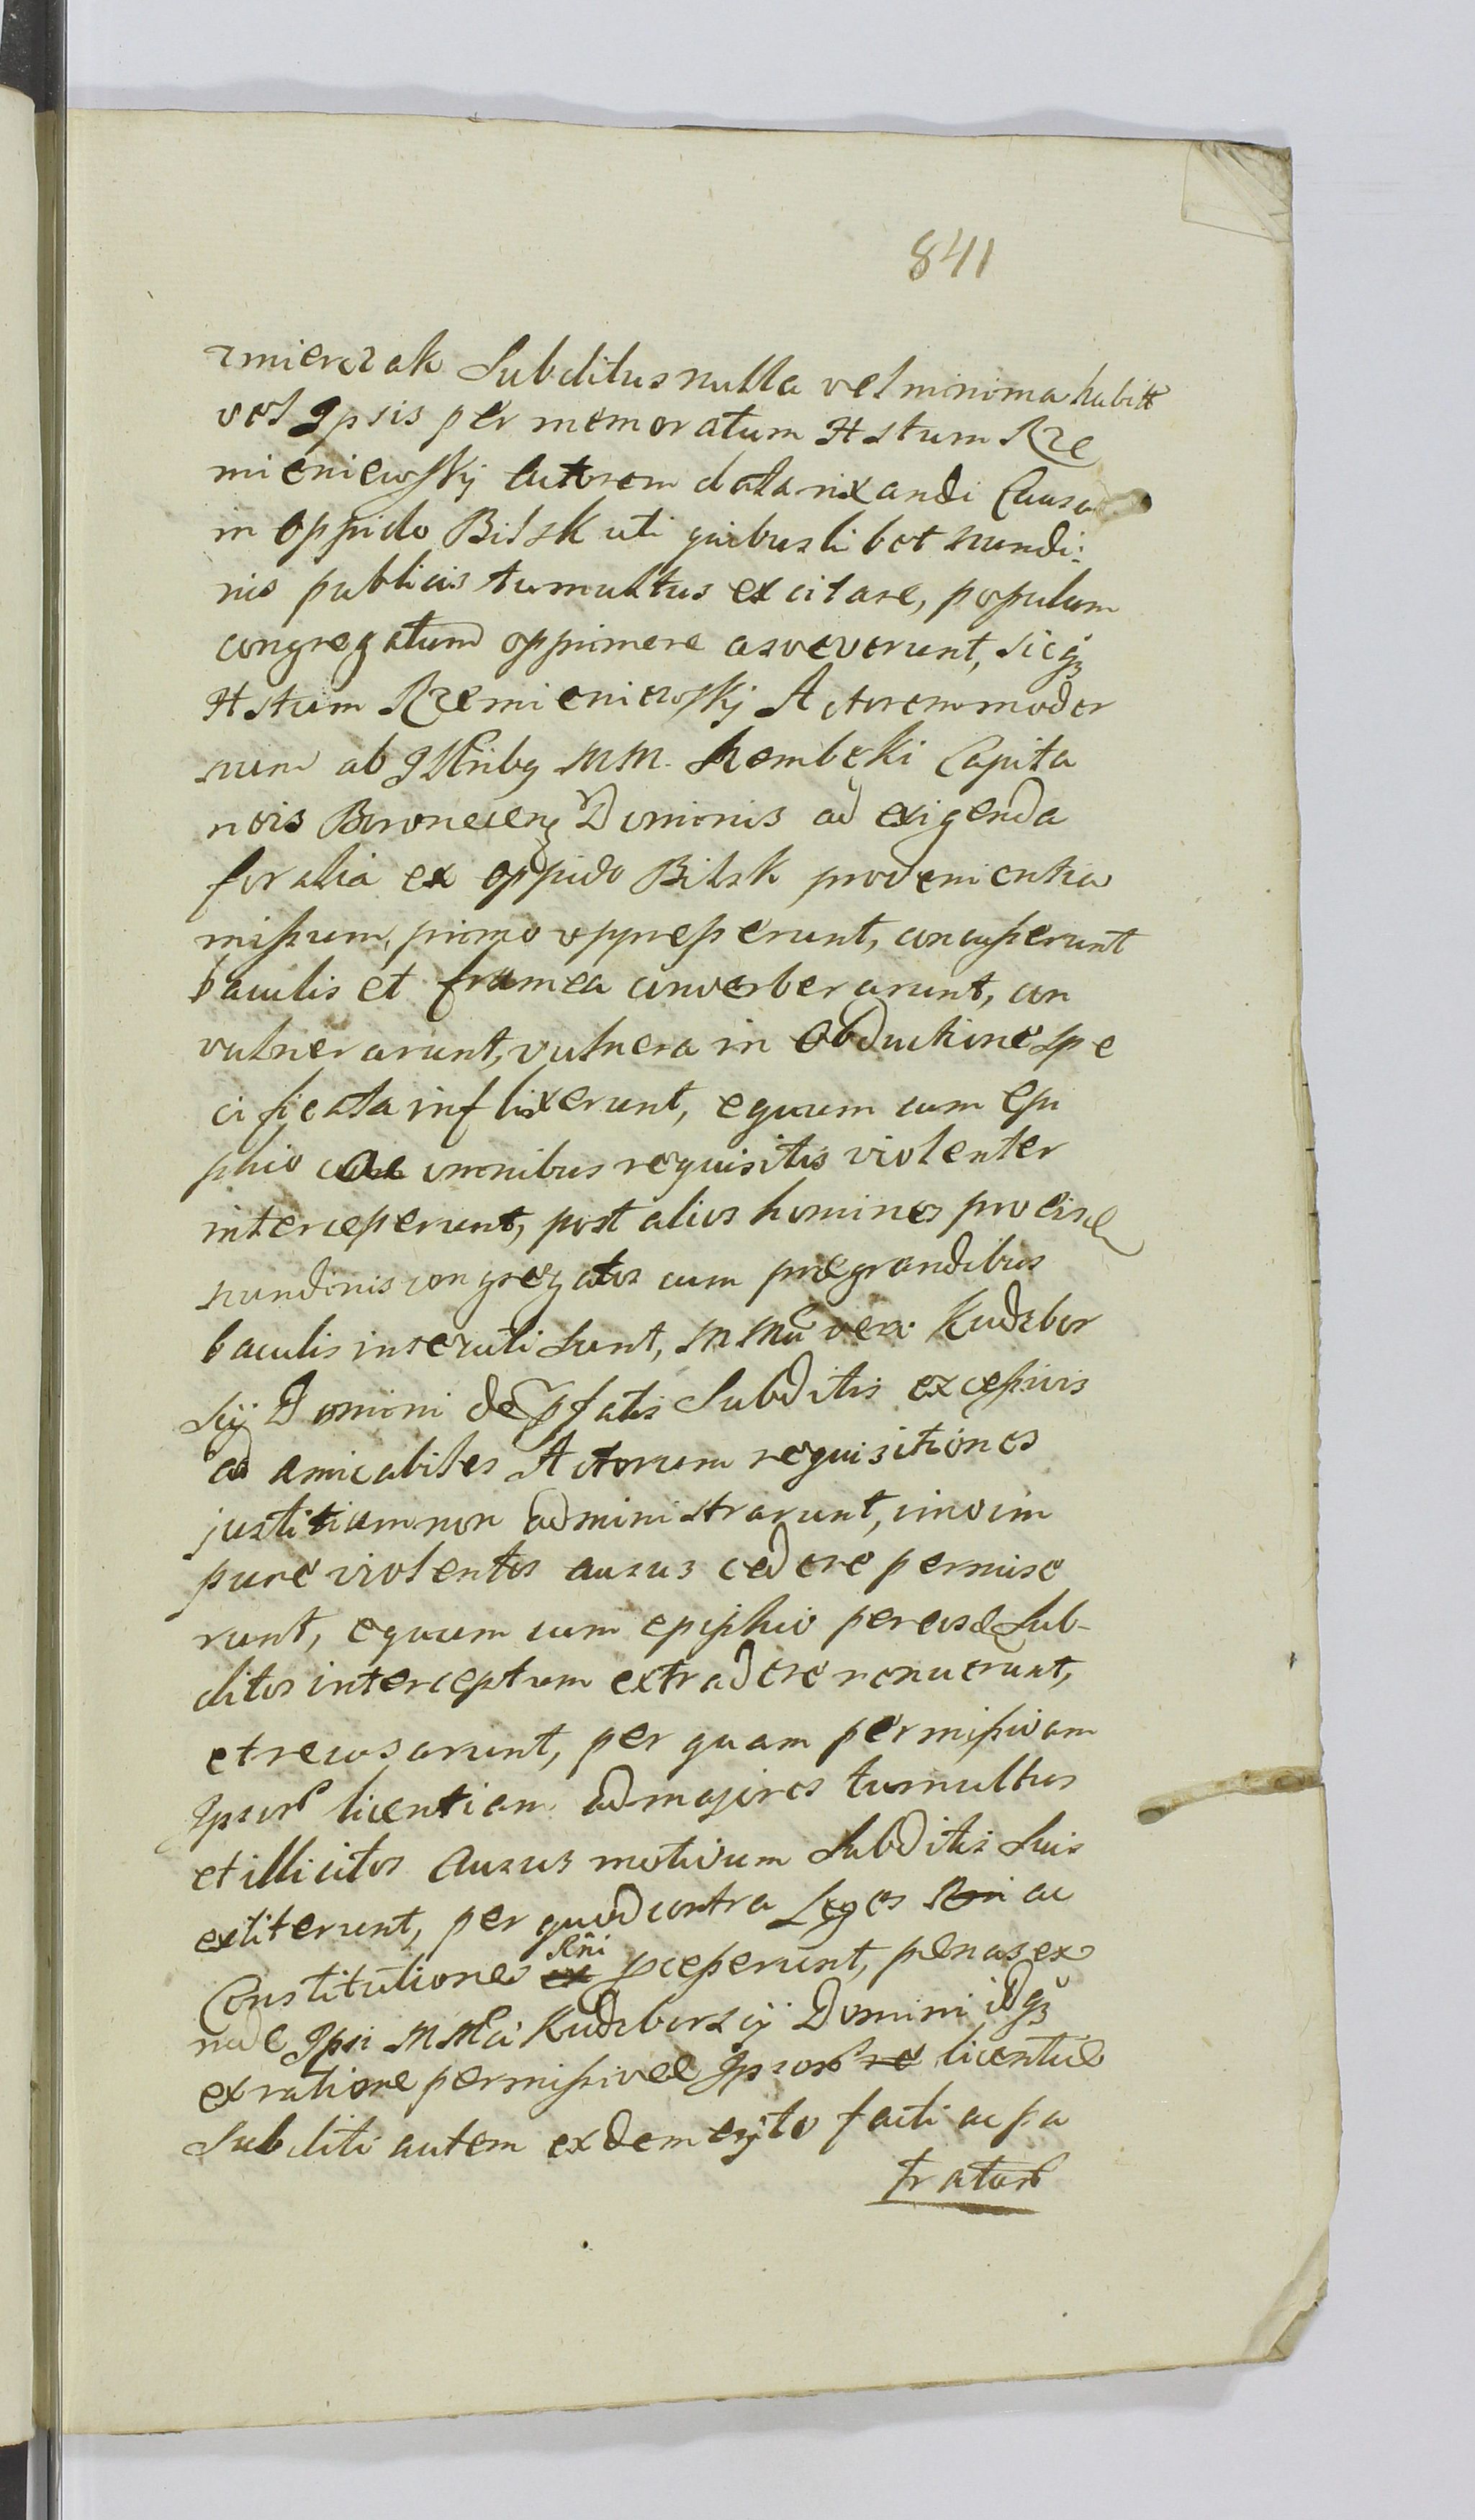 841
zmierczak Subditus nulla vel minima habita
vel Ipsis per memoratum Hstum Rze
mieniewskij Actorem data rixandi Causa
in oppido Bilsk uti quibuslibet nundi:
nis publicis tumultus excitare, populum
congregatum opprimere asveverunt, sicqȝ
Hstum Rzemieniewskij Actorem moder
num ab Illribq MM. Szembeki Capita
neis Boronecenȝ Dominis ad exigenda
foralia ex oppido Bilsk provenientia
missum, primo oppresserunt, concusserunt
baculis et framea converberarunt, con
vulnerarunt, vulnera in Obductione spe
cificata inflixerunt, equum cum epi
phio ac omnibus requisitis violenter
interceperunt, post alios homines pro eisd
nundinis congregatos cum prægrandibus
baculis insecuti sunt, MMci vero Kudzbor
scij Domini de pfatis Subditis excessivis
ad amicabiles Actorum requisitiones
justitiam non administrarunt, imo im
pune violentos ausus cedere permise
runt, equum cum epiphio per eosd Sub-
ditos interceptum extradere renuerunt,
et recusarunt, per quam permissivam
Ipsor licentiam ad majores tumultus
et illicitos ausus motivum Subditis Suis
extiterunt, per quod contra Leges Rni ac
Constitutiones ex Rni pcesserunt, penas ex
nde Ipsi MMci Kudzborscij Domini idqȝ
ex ratione permissivæ Ipsor re licentiæ
Subditi autem ex demerito facti ac pa
trator